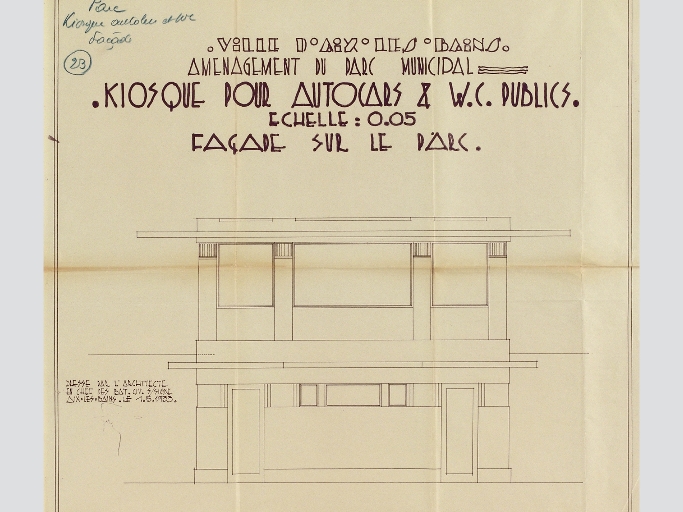 Parc
Kiosque autocars et WC
façade
23
VILLE D'AIX-LES-BAINS.
AMENAGEMENT DU PARC MUNICIPAL
.KIOSQUE POUR AUTOCARS & W.C. PUBLICS.
ECHELLE : 0.05
FAÇADE SUR LE PARC.
DRESSE PAR L'ARCHITECTE
EN CHEF DES BAT. CIV. S/SIGNE
AIX-LES-BAINS. LE 1.5.1933.